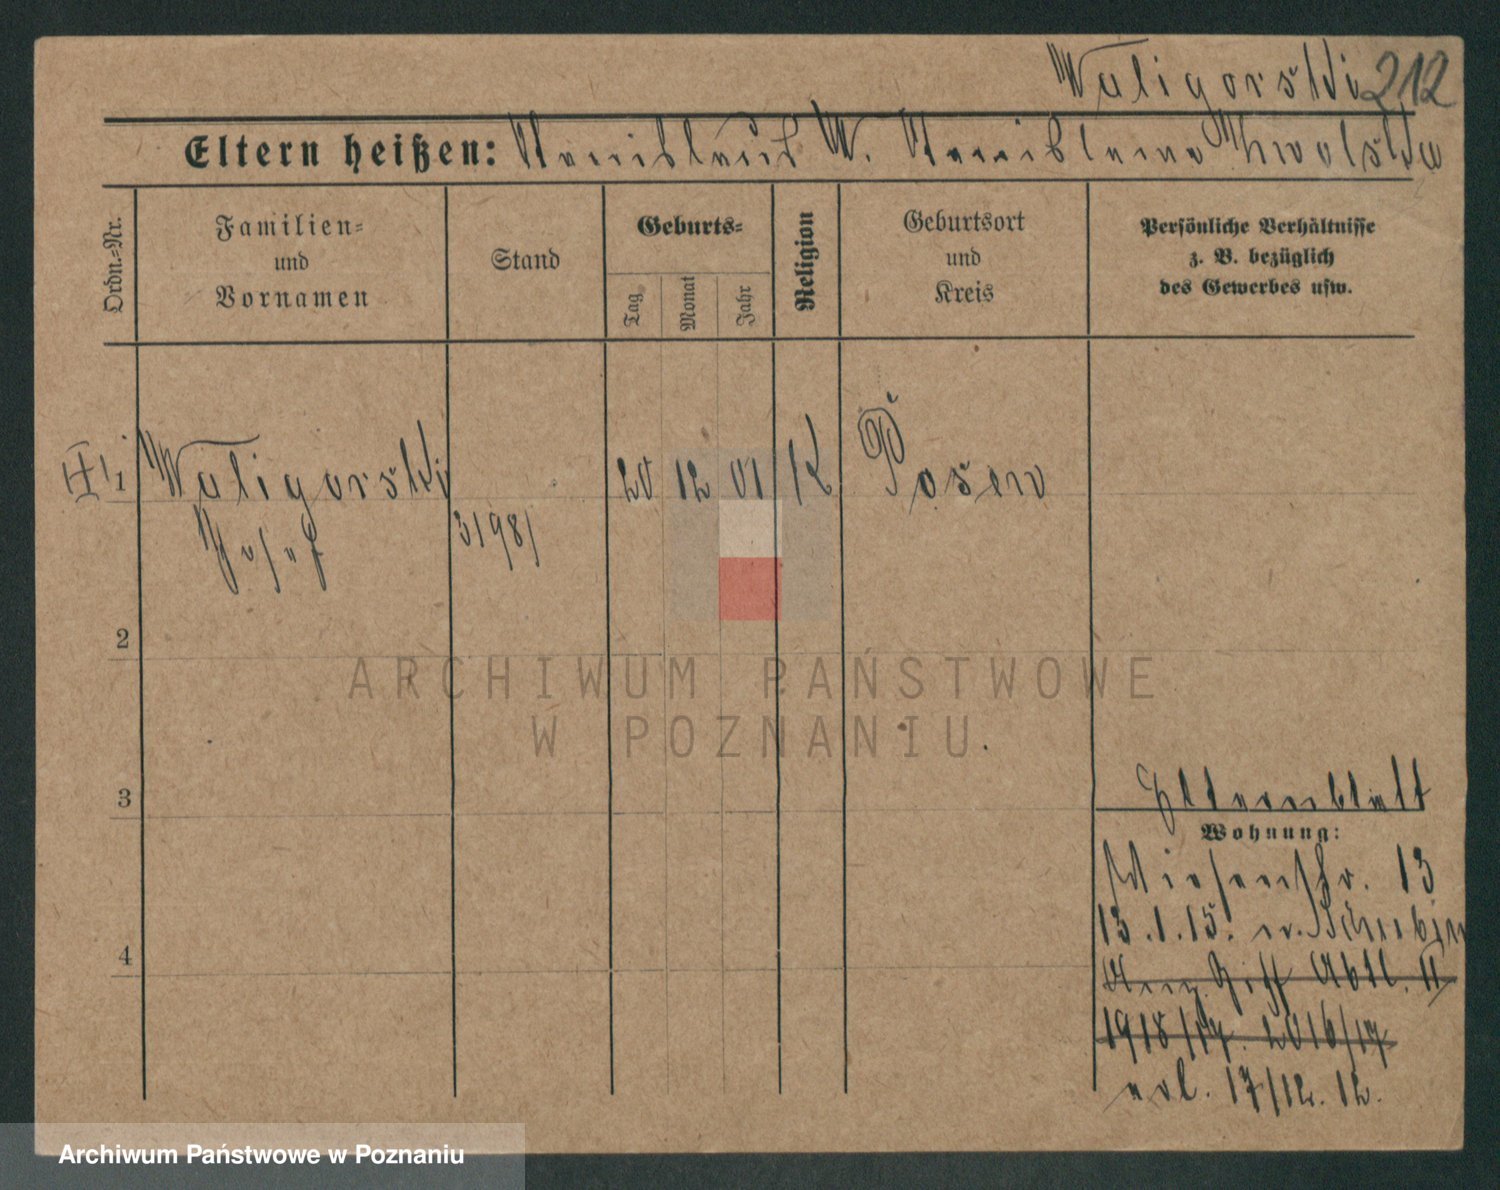 Waligorski 212
Eltern heißen: Stanislaus W. Stanislawa
Ordn.=Nr.
Familien=
und
Vornamen
Stand
Geburts=
Tag
Monat
Jahr
Religion
Geburtsort
und
Kreis
Persönliche Verhältnisse
z. B. bezüglich
des Gewerbes usw.
1 Waligorski 20 12 01 K Posen
Josef 3198/
2
3
4
Elternblatt
Wohnung:
Wiesenstr. 13
13.1.15. n. Schubin
Abtl. II
1918/17. 2016/17
17/12. 12.
ARCHIWUM PAŃSTWOWE
W POZNANIU
Archiwum Państwowe w Poznaniu